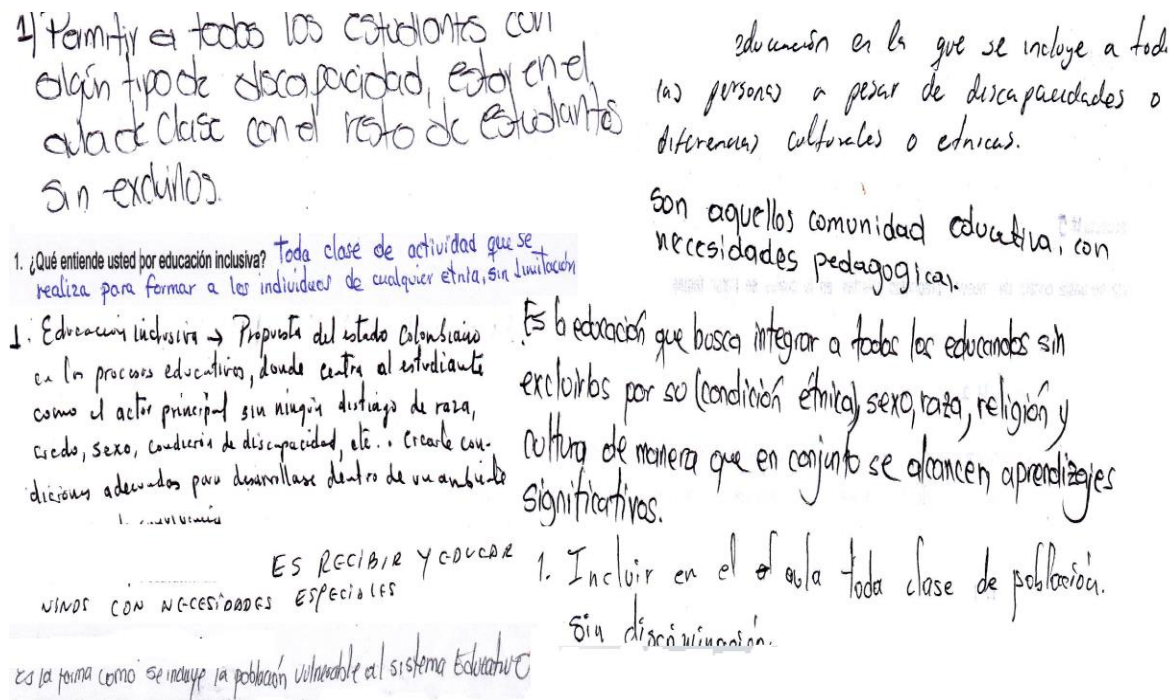 1) Permitir a todos los estudiantes con
algún tipo de discapacidad, estar en el
aula de clase con el resto de estudiantes
sin excluirlos.
1. ¿Qué entiende usted por educación inclusiva? Toda clase de actividad que se
realiza para formar a los individuos de cualquier etnia, sin limitación
1. Educación inclusiva → Propuesta del estado Colombiano
en los procesos educativos, donde centra al estudiante
como el actor principal sin ningún distingo de raza,
credo, sexo, condición de discapacidad, etc.. Crearle con-
diciones adecuadas para desarrollarse dentro de un ambiente
ES RECIBIR Y EDUCAR
NIÑOS CON NECESIDADES ESPECIALES
es la forma como se incluye la población vulnerable al sistema Educativo
educación en la que se incluye a tod
las personas a pesar de discapacidades o
diferencias culturales o etnicas.
Son aquellos comunidad educativa, con
necesidades pedagogicas
Es la educación que busca integrar a todos los educandos sin
excluirlos por su (condición étnica) sexo, raza, religión y
cultura de manera que en conjunto se alcancen aprendizajes
significativos.
1. Incluir en el aula toda clase de población.
Sin discriminación.